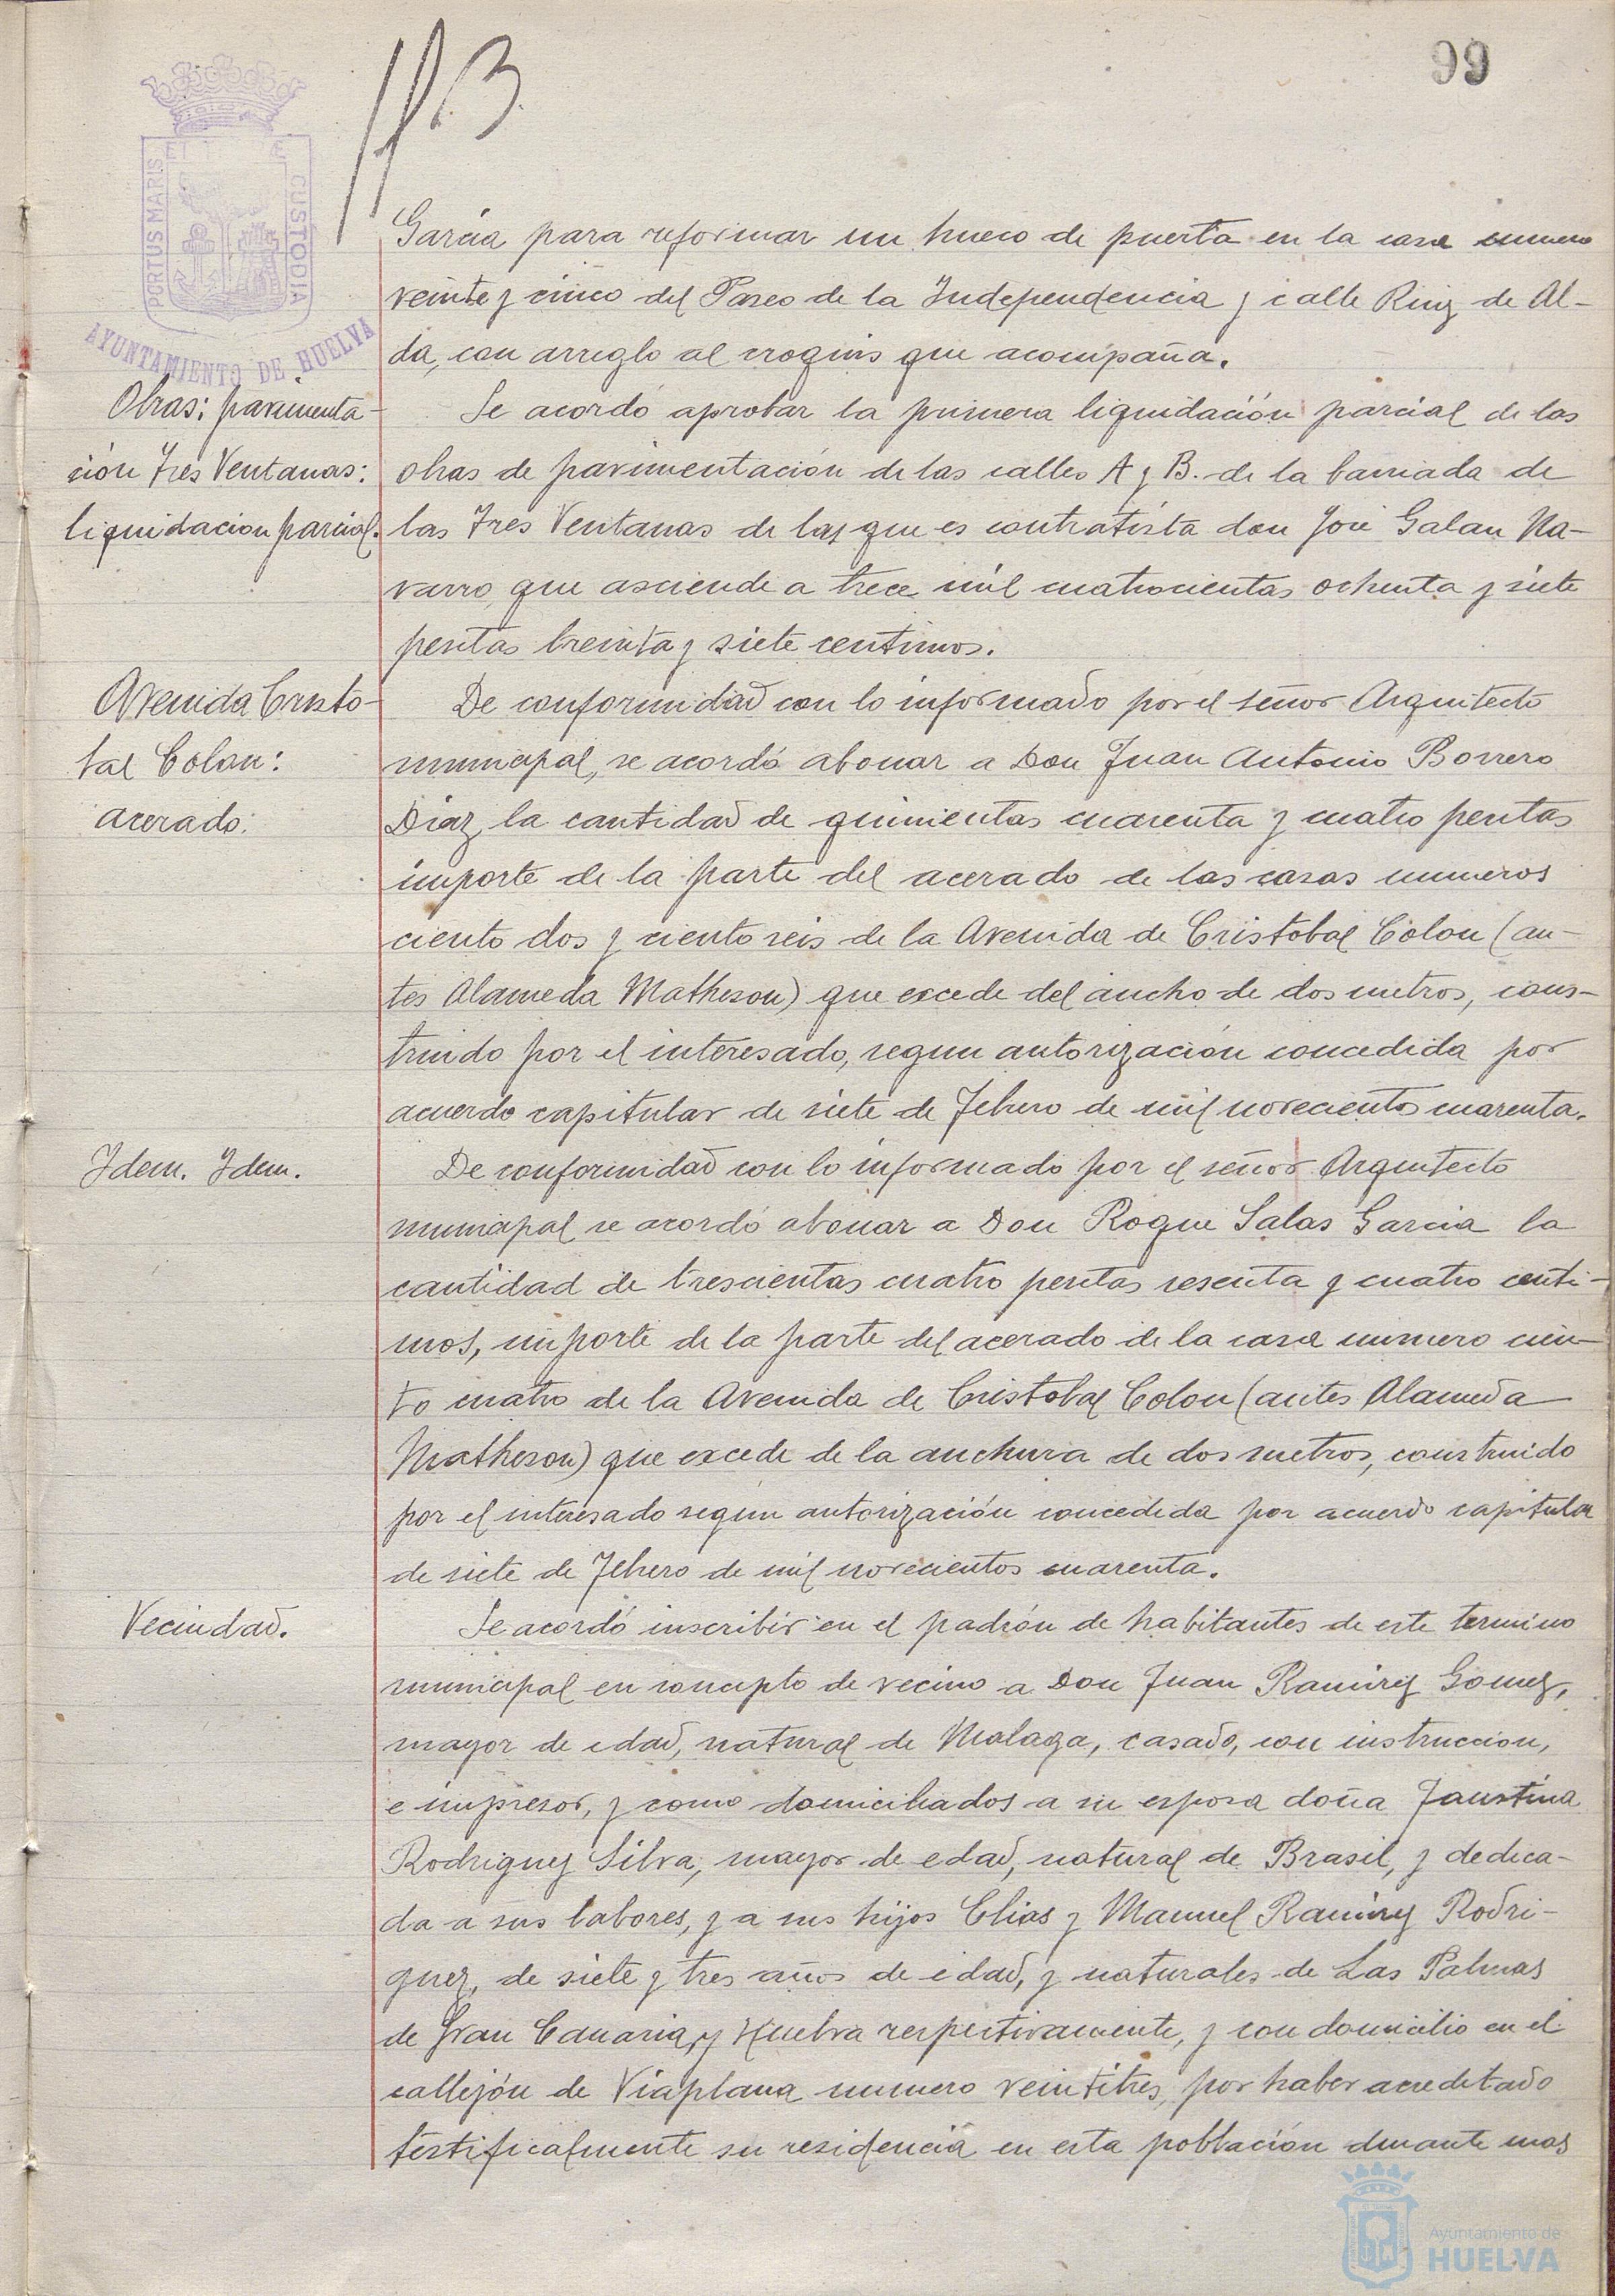 99
PORTUS MARIS
CUSTODIA
AYUNTAMIENTO DE HUELVA
Garcia para reformar un hueco de puerta en la casa numero
veinte y cinco del Paseo de la Independencia y calle Ruiz de Al-
da, con arreglo al croquis que acompaña.
Obras: pavimenta-
ción Tres Ventanas:
liquidacion parcial.
Se acordó aprobar la primera liquidación parcial de las
obras de pavimentación de las calles A y B. de la barriada de
las Tres Ventanas de las que es contratista don José Galan Na-
varro, que asciende a trece mil cuatrocientas ochenta y siete
pesetas treinta y siete centimos.
Avenida Cristo-
bal Colon:
acerado.
De conformidad con lo informado por el señor Arquitecto
municipal, se acordó abonar a Don Juan Antonio Borrero
Diaz, la cantidad de quinientas cuarenta y cuatro pesetas
importe de la parte del acerado de las casas numeros
ciento dos y ciento seis de la Avenida de Cristobal Colon (an-
tes Alameda Matheson) que excede del ancho de dos metros, cons-
truido por el interesado, segun autorización concedida por
acuerdo capitular de siete de Febrero de mil novecientos cuarenta.
Idem. Idem.
De conformidad con lo informado por el señor Arquitecto
municipal se acordó abonar a Don Roque Salas Garcia la
cantidad de trescientas cuatro pesetas sesenta y cuatro centi-
mos, importe de la parte del acerado de la casa numero cien-
to cuatro de la Avenida de Cristobal Colon (antes Alameda
Matheson) que excede de la anchura de dos metros, construido
por el interesado según autorización concedida por acuerdo capitular
de siete de Febrero de mil novecientos cuarenta.
Vecindad.
Se acordó inscribir en el padrón de habitantes de este termino
municipal en concepto de vecino a Don Juan Ramirez Gomez,
mayor de edad, natural de Malaga, casado, con instruccion,
e impresor, y como domiciliados a su esposa doña Faustina
Rodriguez Silva, mayor de edad, natural de Brasil, y dedica-
da a sus labores, y a sus hijos Elias y Manuel Ramirez Rodri-
guez, de siete y tres años de edad, y naturales de Las Palmas
de Gran Canaria, y Huelva respectivamente, y con domicilio en el
callejón de Viaplana numero veintitres, por haber acreditado
testificalmente su residencia en esta población durante mas
Ayuntamiento de
HUELVA